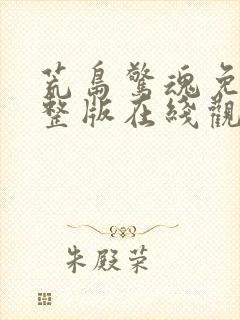 荒島驚魂免
整版在綫觀
朱殿荣